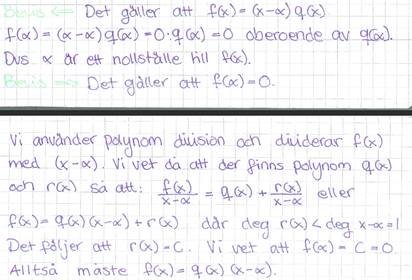 Bevis ⇐ Det gäller att f(x) = (x-α) q(x).
f(α) = (α-α) q(α) = 0·q(α) = 0 oberoende av q(α).
Dvs α är ett nollställe till f(x).
Bevis ⇒ Det gäller att f(α) = 0.
Vi använder polynom division och dividerar f(x)
med (x-α). Vi vet då att der finns polynom q(x)
och r(x) så att: f(x)/(x-α) = q(x) + r(x)/(x-α) eller
f(x) = q(x)(x-α) + r(x) där deg r(x) < deg x-α = 1
Det följer att r(x) = C. Vi vet att f(α) = C = 0.
Alltså måste f(x) = q(x) (x-α).